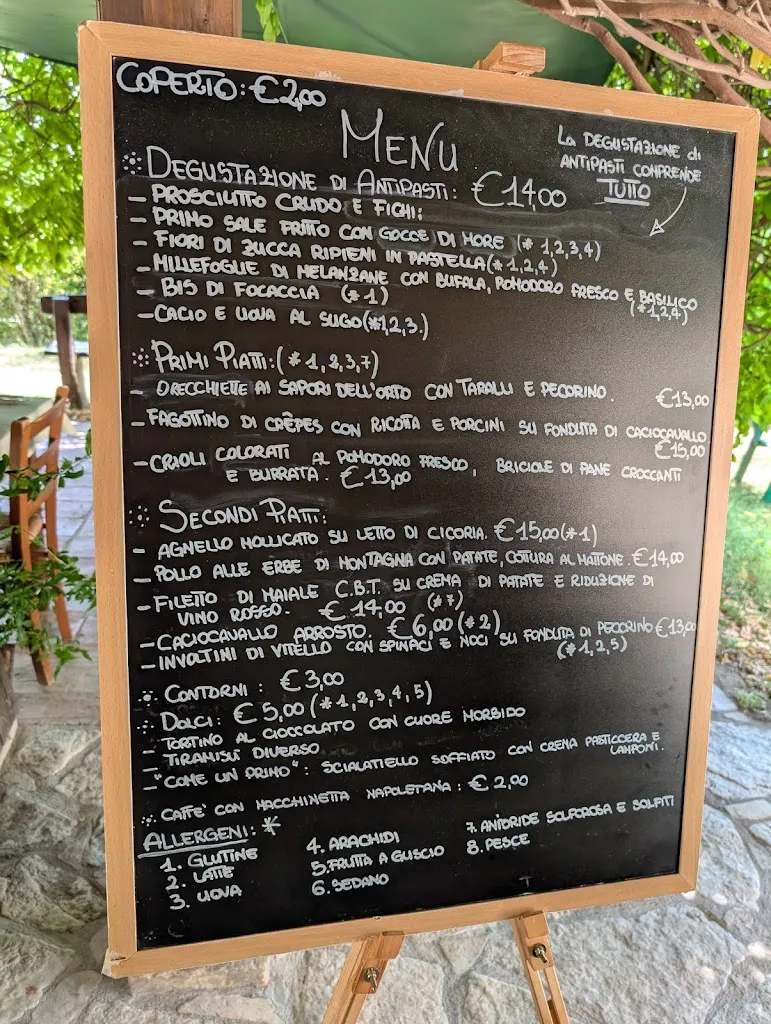 COPERTO: €2,00
MENU
La DEGUSTAZIONE di
ANTIPASTI COMPRENDE
TUTTO
DEGUSTAZIONE DI ANTIPASTI: €14,00
- PROSCIUTTO CRUDO E FICHI;
- PRIMO SALE FRITTO CON GOCCE DI MORE (* 1,2,3,4)
- FIORI DI ZUCCA RIPIENI IN PASTELLA (* 1,2,4)
- MILLEFOGLIE DI MELANZANE CON BUFALA, POMODORO FRESCO E BASILICO
(*1,2,4)
- BIS DI FOCACCIA (*1)
- CACIO E UOVA AL SUGO (*1,2,3.)
PRIMI PIATTI: (* 1, 2, 3, 7)
- ORECCHIETTE AI SAPORI DELL'ORTO CON TARALLI E PECORINO. €13,00
- FAGOTTINO DI CRÊPES CON RICOTTA E PORCINI SU FONDUTA DI CACIOCAVALLO
€15,00
- CRIOLI COLORATI AL POMODORO FRESCO, BRICIOLE DI PANE CROCCANTI
E BURRATA. €13,00
SECONDI PIATTI:
- AGNELLO MOLLICATO SU LETTO DI CICORIA. €15,00 (*1)
- POLLO ALLE ERBE DI MONTAGNA CON PATATE, COTTURA AL MATTONE. €14,00
- FILETTO DI MAIALE C.B.T. SU CREMA DI PATATE E RIDUZIONE DI
VINO ROSSO. €14,00 (*7)
- CACIOCAVALLO ARROSTO. €6,00 (*2)
- INVOLTINI DI VITELLO CON SPINACI E NOCI SU FONDUTA DI PECORINO €13,00
(*1,2,5)
CONTORNI: €3,00
DOLCI: €5,00 (*1,2,3,4,5)
- TORTINO AL CIOCCOLATO CON CUORE MORBIDO
- TIRAMISÙ DIVERSO
- "COME UN PRIMO": SCIALATIELLO SOFFIATO CON CREMA PASTICCERA E
LAMPONI.
CAFFE' CON MACCHINETTA NAPOLETANA: €2,00
ALLERGENI: *
1. GLUTINE
2. LATTE
3. UOVA
4. ARACHIDI
5. FRUTTA A GUSCIO
6. SEDANO
7. ANIDRIDE SOLFOROSA E SOLFITI
8. PESCE